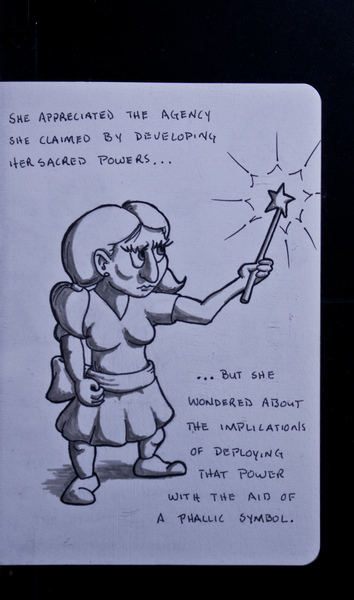 SHE APPRECIATED THE AGENCY
SHE CLAIMED BY DEVELOPING
HER SACRED POWERS...
...BUT SHE
WONDERED ABOUT
THE IMPLICATIONS
OF DEPLOYING
THAT POWER
WITH THE AID OF
A PHALLIC SYMBOL.